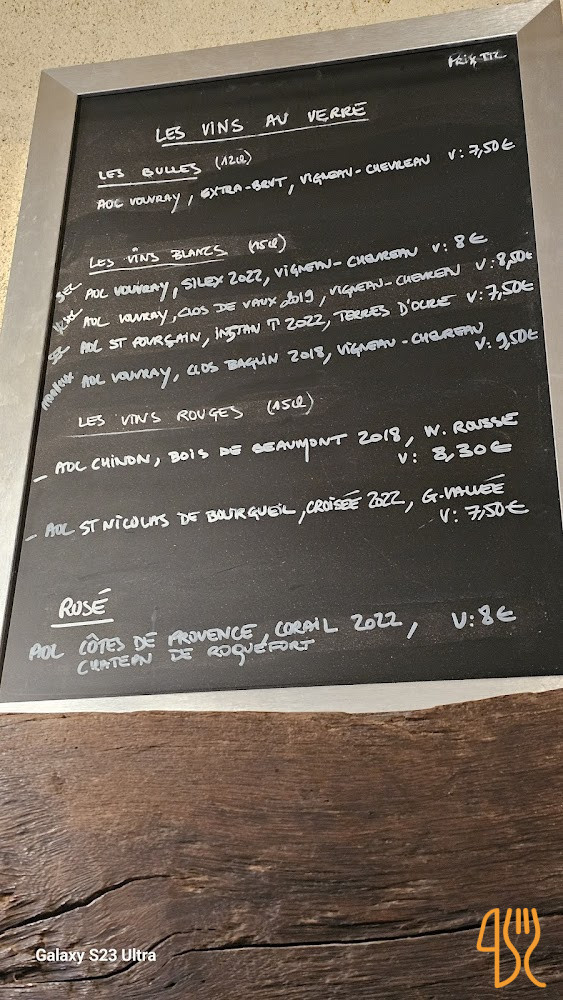 Prix TTC
LES VINS AU VERRE
LES BULLES (12cl)
AOC VOUVRAY, EXTRA-BRUT, VIGNEAU-CHEVREAU V: 7,50€
LES VINS BLANCS (15cl)
SEC AOC VOUVRAY, SILEX 2022, VIGNEAU-CHEVREAU V: 8€
AOC VOUVRAY, CLOS DE VAUX 2019, VIGNEAU-CHEVREAU V: 8,50€
AOC ST POURÇAIN, INSTAN T 2022, TERRES D'OCRE V: 7,50€
AOC VOUVRAY, CLOS BAGLIN 2018, VIGNEAU-CHEVREAU
V: 9,50€
LES VINS ROUGES (15cl)
- AOC CHINON, BOIS DE BEAUMONT 2018, W. ROUSSE
V: 8,30€
- AOC ST NICOLAS DE BOURGUEIL, CROISÉE 2022, G. VALLÉE
V: 7,50€
ROSÉ
AOC CÔTES DE PROVENCE, CORAIL 2022, V: 8€
CHATEAU DE ROQUEFORT
Galaxy S23 Ultra